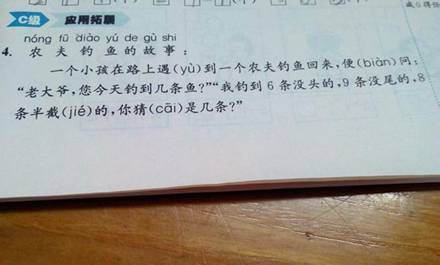 C级 应用拓展
nóng fū diào yú de gù shi
4. 农夫钓鱼的故事：
一个小孩在路上遇(yù)到一个农夫钓鱼回来,便(biàn)问：
“老大爷,您今天钓到几条鱼?”“我钓到 6 条没头的,9 条没尾的,8
条半截(jié)的,你猜(cāi)是几条?”